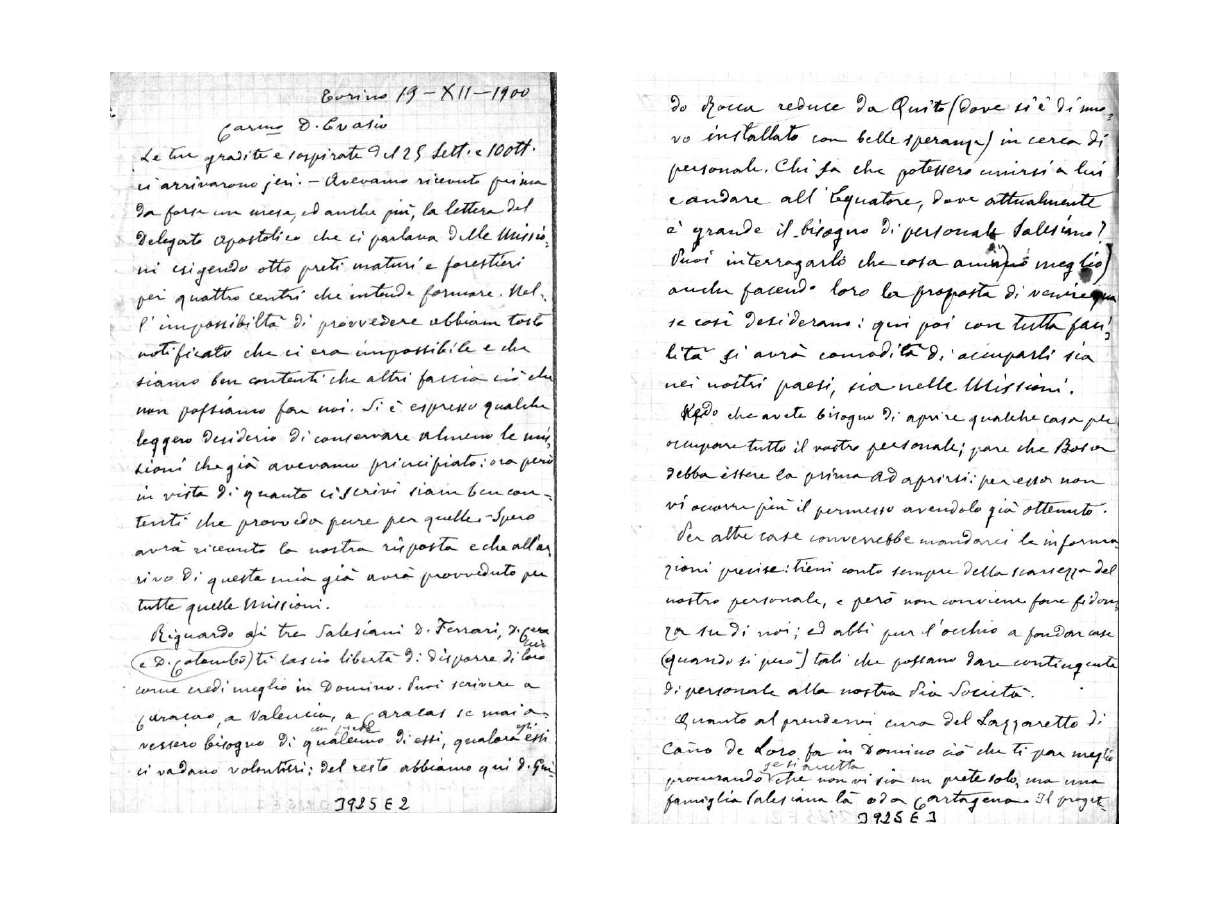 Torino 19-XII-1900
Carmo D. Evasio
Le tue gradite e sospirate del 25 Sett. e 10 Ott.
ci arrivarono jeri. - Avevamo ricevuto prima
da forse un mese, ed anche più, la lettera del
Delegato Apostolico che ci parlava delle Missio-
ni esigendo otto preti maturi e forestieri
pei quattro centri che intende formare. Nel-
l'impossibiltà di provvedere abbiam tosto
notificato che ci era impossibile e che
siamo ben contenti che altri faccia ciò che
non possiamo far noi. Si è espresso qualche
leggero desiderio di conservare almeno le mis-
sioni che già avevamo principiato: ora però
in vista di quanto ci scrivi siam ben con-
tenti che provveda pure per quelle. Spero
avrà ricevuto la nostra risposta e che all'ar
rivo di questa mia già avrà provveduto per
tutte quelle Missioni.
Riguardo ai tre Salesiani D. Ferrari, D.
(e D. Colombo) ti lascio libertà di disporre di loro
come credi meglio in Domino. Puoi scrivere a
Curaçao, a Valencia, a Caracas se mai a-
vessero bisogno di qualcuno di essi, qualora essi
ci vadano volontieri; del resto abbiamo qui D. Gui
3925 E 2
do Rocca reduce da Quito (dove si è di nuo-
vo installato con belle speranze) in cerca di
personale. Chi sa che potessero unirsi a lui
e andare all'Equatore, dove attualmente
è grande il bisogno di personale Salesiano?
Puoi interrogarli che cosa meglio)
anche facendo loro la proposta di venire qua
se così desiderano: qui poi con tutta faci-
lità si avrà comodità di occuparli sia
nei nostri paesi, sia nelle Missioni.
Vedo che avete bisogno di aprire qualche casa per
occupare tutto il vostro personale; pare che Bosa
debba essere la prima ad aprirsi: per essa non
vi occorre più il permesso avendolo già ottenuto.
Per altre case converrebbe mandarci le informa
zioni precise: tieni conto sempre della scarsezza del
nostro personale, e però non conviene fare fidan-
za su di noi; ed abbi pur l'occhio a fondar case
(quando si può) tali che possano dare contingente
di personale alla nostra Pia Società.
Quanto al prendervi cura del Lazzaretto di
Caño de Loro fa in Domino ciò che ti par meglio
procurando che non vi sia un prete solo, ma una
famiglia Salesiana là o da Cartagena. Il proget-
3925 E 3